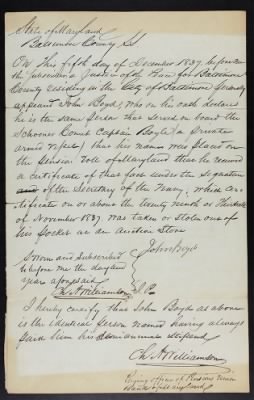 State of Maryland
Baltimore County Ss
On this fifth day of December 1837 before
the subscriber a Justice of the Peace for Baltimore
County residing in the City of Baltimore personally
appears John Boyd, who on his oath declares
he is the same person that served on board the
Schooner Comet Captain Boyle (a private
armed vessel) that his name was placed on
the Pension Roll of Maryland that he received
a certificate of that fact under the signature
of the Secretary of the Navy, which cer-
tificate on or about the twenty ninth or thirtieth
of November 1837 was taken or stolen out of
his pocket in an Auction Store
John Boyd
Sworn and subscribed
before me the day and
year aforesaid
J.P.
I hereby certify that John Boyd as above
is the identical person named having always
paid him his semiannual stipend